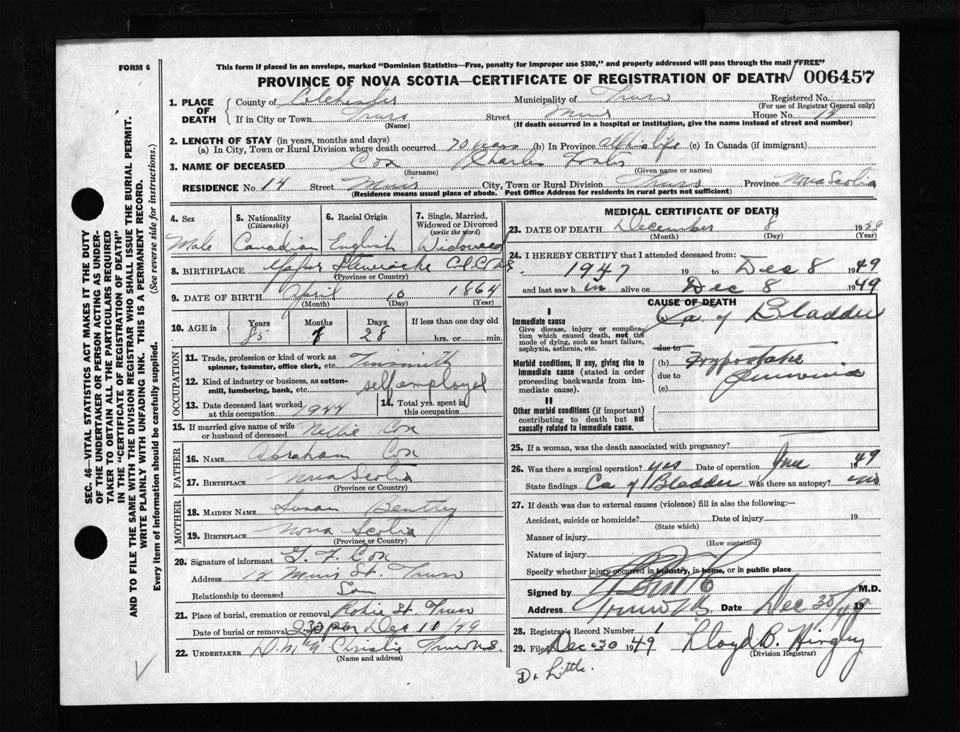 FORM 6
This form if placed in an envelope, marked "Dominion Statistics—Free, penalty for improper use $300," and properly addressed will pass through the mail "FREE"
PROVINCE OF NOVA SCOTIA—CERTIFICATE OF REGISTRATION OF DEATH 006457
1. PLACE OF DEATH
County of Colchester Municipality of Truro Registered No.
(For use of Registrar General only)
If in City or Town Truro Street Muir House No. 14
(Name) (If death occurred in a hospital or institution, give the name instead of street and number)
2. LENGTH OF STAY (in years, months and days)
(a) In City, Town or Rural Division where death occurred 70 years (b) In Province all his life (c) In Canada (if immigrant)
3. NAME OF DECEASED Cox Charles
(Surname) (Given name or names)
RESIDENCE No. 14 Street Muir City, Town or Rural Division Truro Province Nova Scotia
(Residence means usual place of abode. Post Office Address for residents in rural parts not sufficient)
4. Sex 5. Nationality 6. Racial Origin 7. Single, Married, Widowed or Divorced
(Citizenship) (write the word)
Male Canadian English Widowed
8. BIRTHPLACE Upper Stewiacke Col Co N.S.
(Province or Country)
9. DATE OF BIRTH April 10 1864
(Month) (Day) (Year)
10. AGE in Years Months Days If less than one day old
85 7 28 hrs. or min.
OCCUPATION
11. Trade, profession or kind of work as spinner, teamster, office clerk, etc. Tinsmith
12. Kind of industry or business, as cotton-mill, lumbering, bank, etc. self employed
13. Date deceased last worked at this occupation 1944 14. Total yrs. spent in this occupation
15. If married give name of wife or husband of deceased Nellie Cox
FATHER
16. NAME Abraham Cox
17. BIRTHPLACE Nova Scotia
(Province or Country)
MOTHER
18. MAIDEN NAME Susan Bentley
19. BIRTHPLACE Nova Scotia
(Province or Country)
20. Signature of informant G. F. Cox
Address 14 Muir St. Truro
Relationship to deceased Son
21. Place of burial, cremation or removal Robie St. Truro
Date of burial or removal 2.30 pm Dec 10/49
22. UNDERTAKER Christie Truro N.S.
(Name and address)
MEDICAL CERTIFICATE OF DEATH
23. DATE OF DEATH December 8
(Month) (Day) (Year)
24. I HEREBY CERTIFY that I attended deceased from:
1947 19 to Dec 8 1949
and last saw him alive on Dec 8 1949
CAUSE OF DEATH
I
Immediate cause Ca of Bladder
Give disease, injury or complication which caused death, not the mode of dying, such as heart failure, asphyxia, asthenia, etc.
due to
Morbid conditions, if any, giving rise to immediate cause (stated in order proceeding backwards from immediate cause).
(b)
due to
(c)
II
Other morbid conditions (if important) contributing to death but not causally related to immediate cause.
25. If a woman, was the death associated with pregnancy?
26. Was there a surgical operation? yes Date of operation June 1949
State findings Ca of Bladder Was there an autopsy? no
27. If death was due to external causes (violence) fill in also the following:—
Accident, suicide or homicide? Date of injury 19
(State which)
Manner of injury
(How sustained)
Nature of injury
Specify whether injury occurred in industry, in home, or in public place
Signed by M.D.
Address Truro N.S. Date Dec 19
28. Registrar's Record Number 1
29. Filed Dec 30 1949 Lloyd B. Hingley
(Division Registrar)
Dr Little.
SEC. 46—VITAL STATISTICS ACT MAKES IT THE DUTY OF THE UNDERTAKER OR PERSON ACTING AS UNDERTAKER TO OBTAIN ALL THE PARTICULARS REQUIRED IN THE "CERTIFICATE OF REGISTRATION OF DEATH" AND TO FILE THE SAME WITH THE DIVISION REGISTRAR WHO SHALL ISSUE THE BURIAL PERMIT.
WRITE PLAINLY WITH UNFADING INK. THIS IS A PERMANENT RECORD.
Every item of information should be carefully supplied. (See reverse side for instructions.)